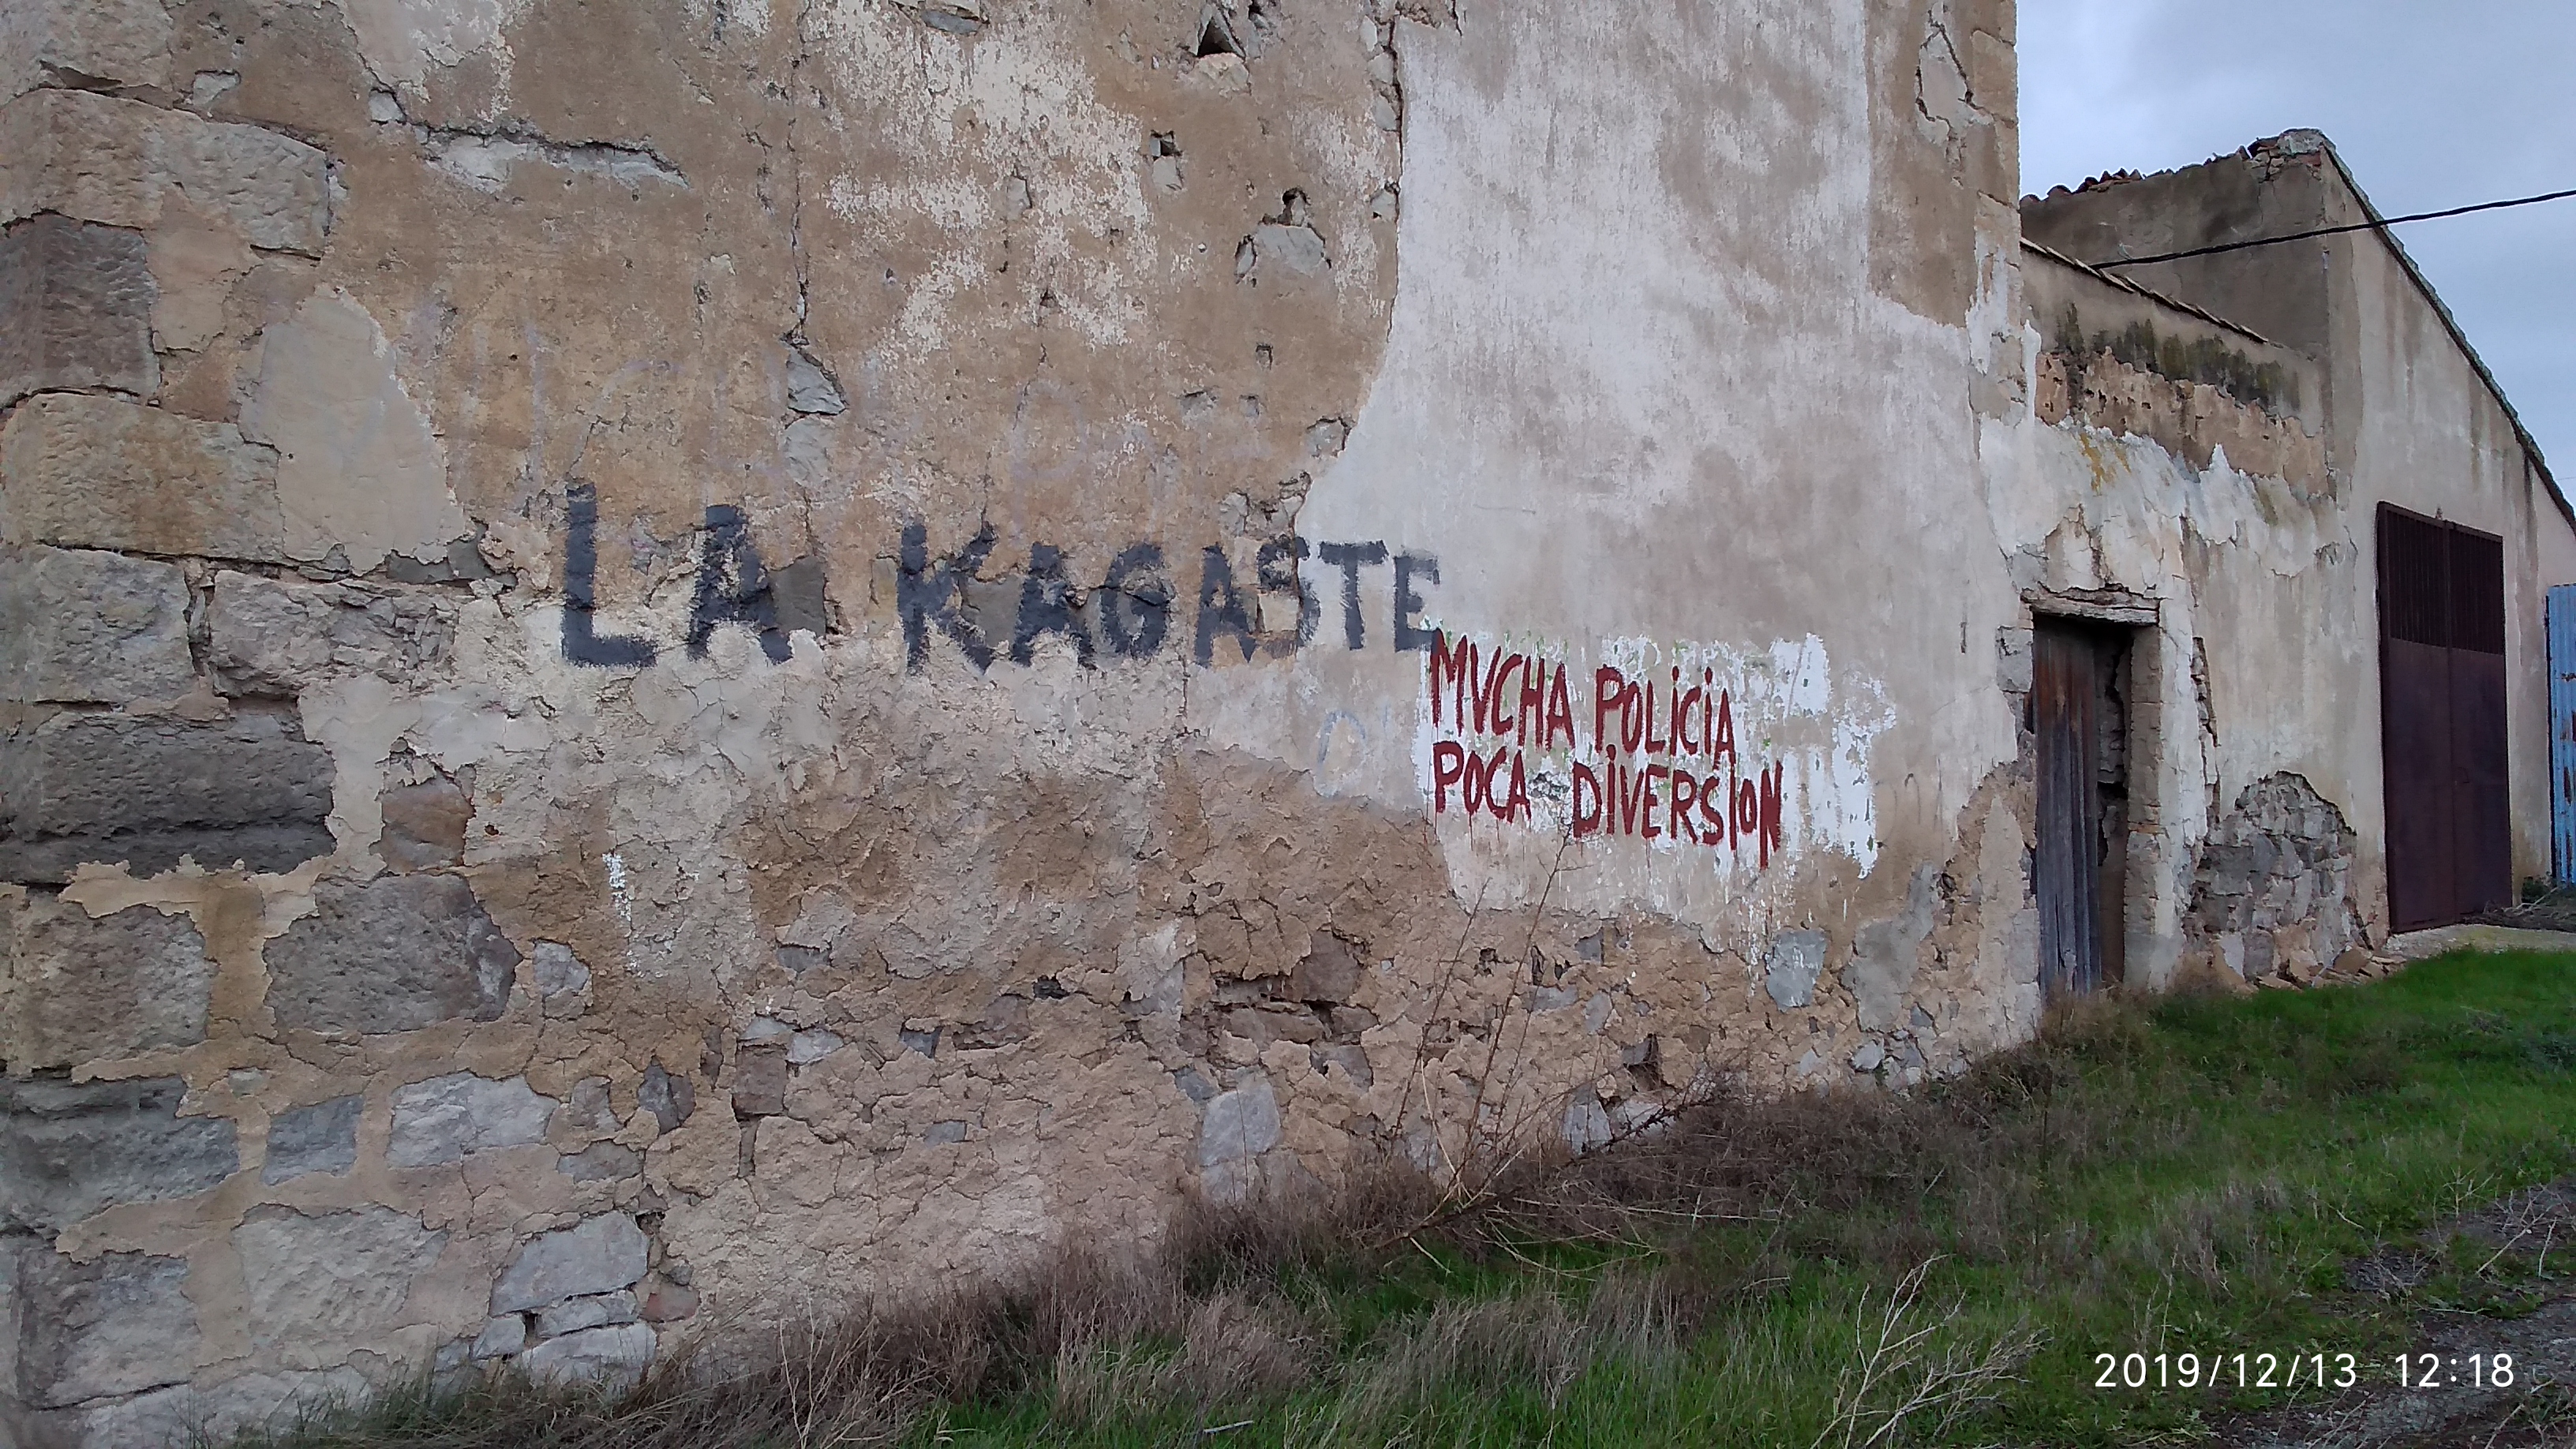 LA KAGASTE
MVCHA POLiCiA
POCA DiVERSION
2019/12/13 12:18